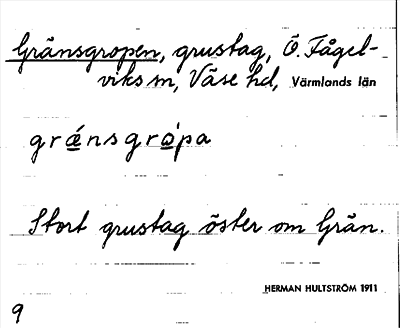 Gränsgropen, grustag, Ö. Fågel-
viks sn, Väse hd, Värmlands län
grǽnsgrò̱pa
Stort grustag öster om Grän.
HERMAN HULTSTRÖM 1911
9